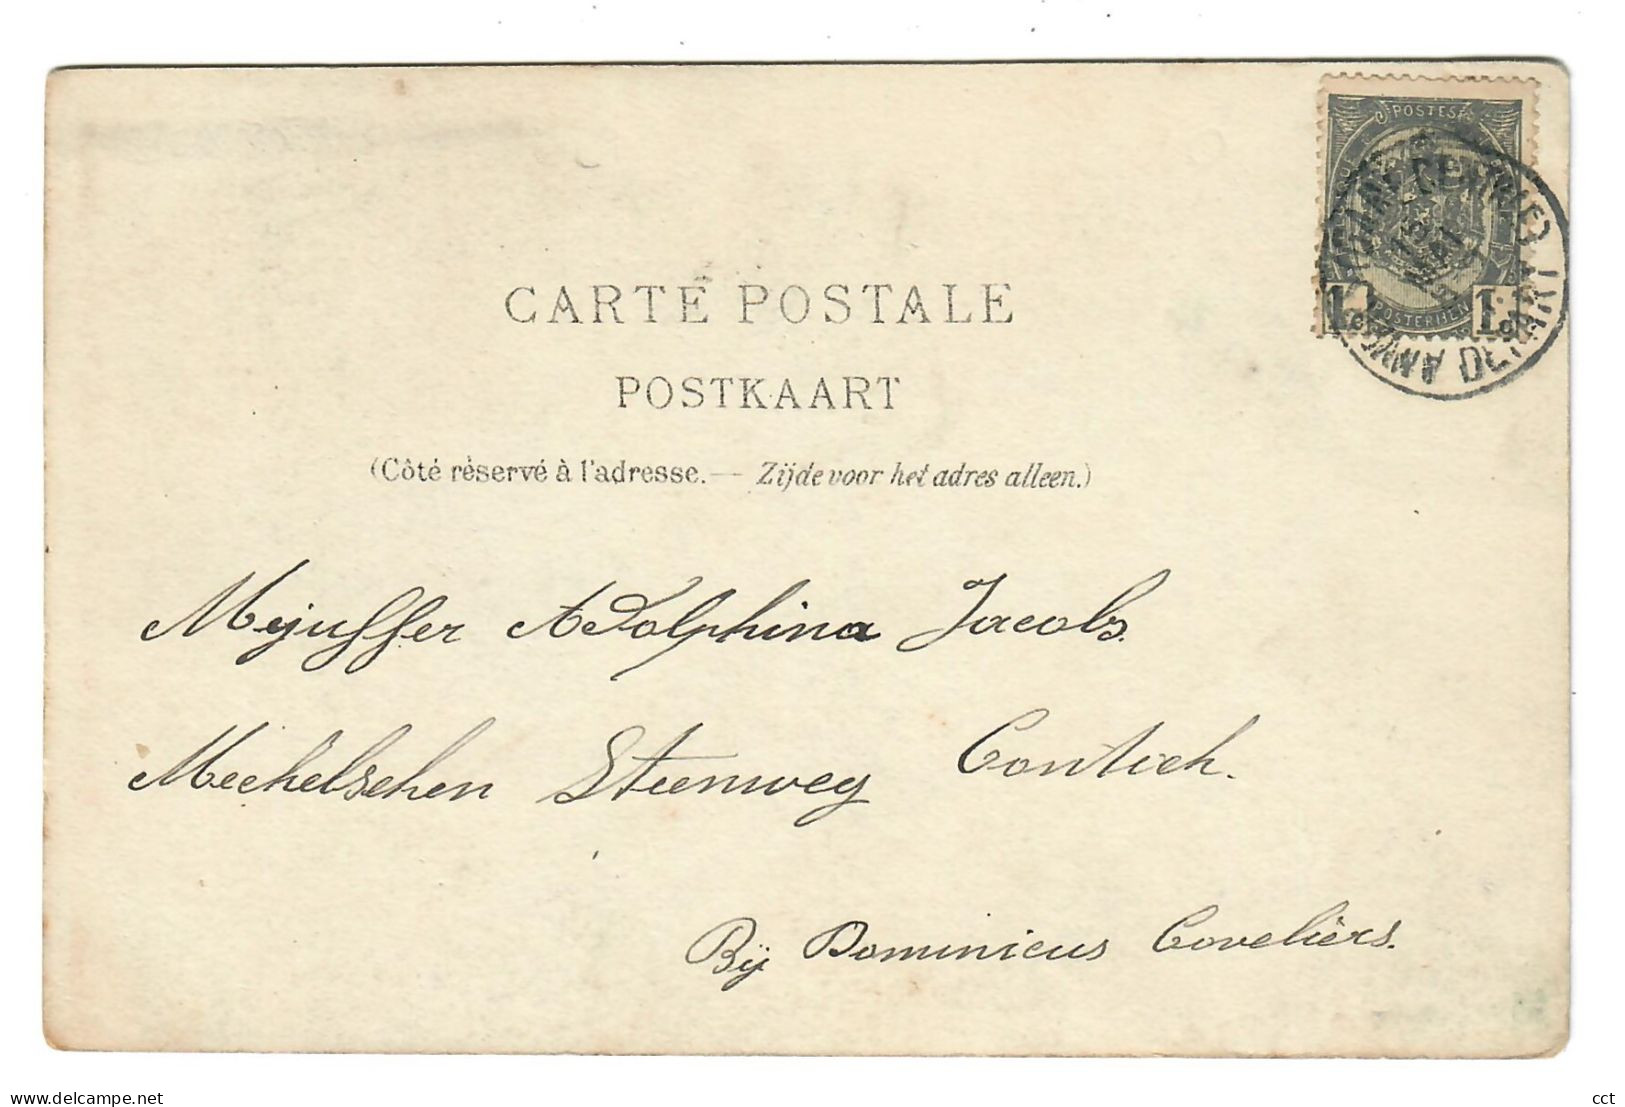 POSTES
POSTERIJEN
1 1
CARTE POSTALE
POSTKAART
(Côté réservé à l'adresse. — Zijde voor het adres alleen.)
Mejuffer Adolphina Jacobs.
Mechelschen Steenweg Contich.
Bij Dominicus Coveliers.
www.delcampe.net
cct